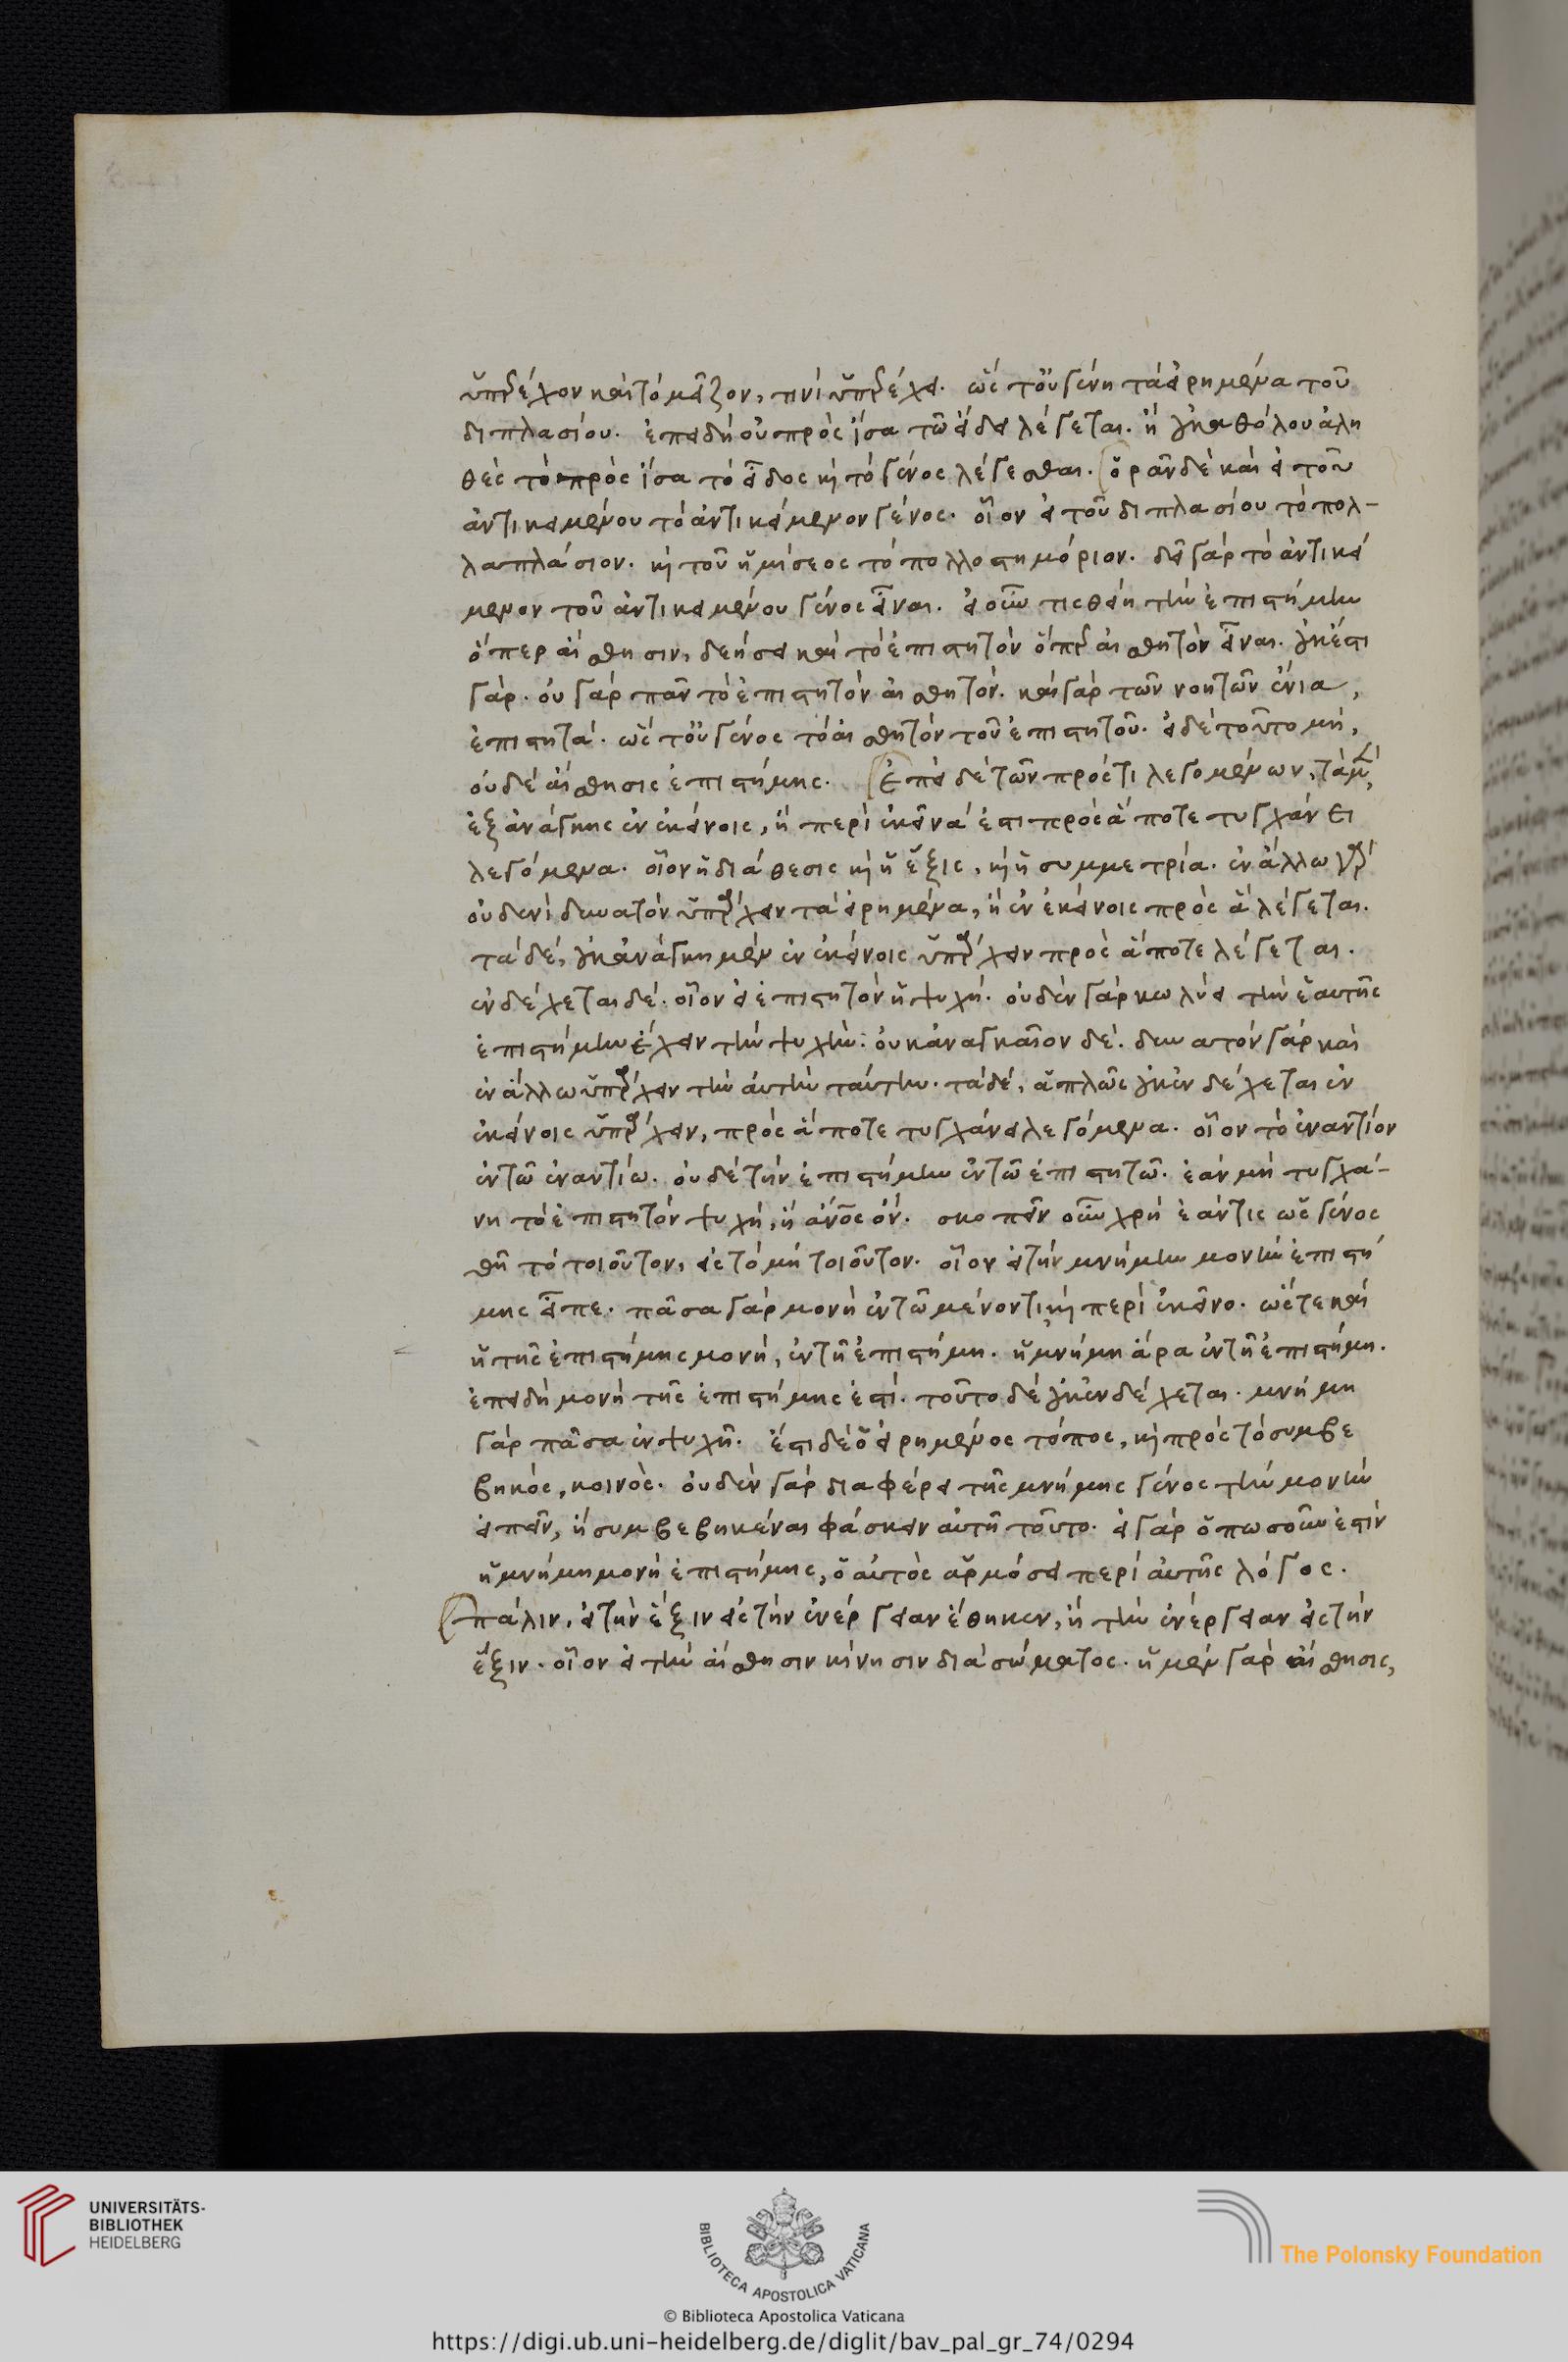 ὑπερέχον καὶ τὸ μεῖζον, τινὶ ὑπερέχει. ὥστ' οὐ γένη τὰ εἰρημένα τοῦ
διπλασίου. ἐπειδὴ οὐ πρὸς ἴσα τῶ εἴδει λέγεται. ἢ οὐ καθόλου ἀλη
θὲς τὸ πρὸς ἴσα τὸ εἶδος καὶ τὸ γένος λέγεσθαι. ὁρᾶν δὲ καὶ εἰ τοῦ
ἀντικειμένου τὸ ἀντικείμενον γένος. οἷον εἰ τοῦ διπλασίου τὸ πολ-
λαπλάσιον. καὶ τοῦ ἡμίσεος τὸ πολλοστημόριον. δεῖ γὰρ τὸ ἀντικεί
μενον τοῦ ἀντικειμένου γένος εἶναι. εἰ οὖν τις θείη τὴν ἐπιστήμην
ὅπερ αἴσθησιν, δεήσει καὶ τὸ ἐπιστητὸν ὅπερ αἰσθητὸν εἶναι. οὐκ ἔστι
γάρ. οὐ γὰρ πᾶν τὸ ἐπιστητὸν αἰσθητόν. καὶ γὰρ τῶν νοητῶν ἔνια,
ἐπιστητά. ὥστ' οὐ γένος τὸ αἰσθητὸν τοῦ ἐπιστητοῦ. εἰ δὲ τοῦτο μὴ,
οὐδὲ αἴσθησις ἐπιστήμης. Ἐπεὶ δὲ τῶν πρός τι λεγομένων, τὰ μὲν,
ἐξ ἀνάγκης ἐν ἐκείνοις, ἢ περὶ ἐκεῖνά ἐστι πρὸς ἅ ποτε τυγχάνει
λεγόμενα. οἷον ἡ διάθεσις καὶ ἡ ἕξις, καὶ ἡ συμμετρία. ἐν ἄλλω γὰρ
οὐδενὶ δυνατὸν ὑπάρχειν τὰ εἰρημένα, ἢ ἐν ἐκείνοις πρὸς ἃ λέγεται.
τὰ δὲ, οὐκ ἀνάγκη μὲν ἐν ἐκείνοις ὑπάρχειν πρὸς ἅ ποτε λέγεται.
ἐνδέχεται δέ. οἷον εἰ ἐπιστητὸν ἡ ψυχή. οὐδὲν γὰρ κωλύει τὴν ἑαυτῆς
ἐπιστήμην ἔχειν τὴν ψυχήν. οὐκ ἀναγκαῖον δέ. δυνατὸν γὰρ καὶ
ἐν ἄλλω ὑπάρχειν τὴν αὐτὴν ταύτην. τὰ δὲ, ἁπλῶς οὐκ ἐνδέχεται ἐν
ἐκείνοις ὑπάρχειν, πρὸς ἅ ποτε τυγχάνει λεγόμενα. οἷον τὸ ἐναντίον
ἐν τῶ ἐναντίω. οὐδὲ τὴν ἐπιστήμην ἐν τῶ ἐπιστητῶ. ἐὰν μὴ τυγχά-
νη τὸ ἐπιστητὸν ψυχὴ, ἢ ἄνος ὄν. σκοπεῖν οὖν χρὴ ἐάν τις ὡς γένος
θῆ τὸ τοιοῦτον, εἰς τὸ μὴ τοιοῦτον. οἷον εἰ τὴν μνήμην μονὴν ἐπιστή
μης εἶπε. πᾶσα γὰρ μονὴ ἐν τῶ μένοντι καὶ περὶ ἐκεῖνο. ὥστε καὶ
ἡ τῆς ἐπιστήμης μονὴ, ἐν τῆ ἐπιστήμη. ἡ μνήμη ἄρα ἐν τῆ ἐπιστήμη.
ἐπειδὴ μονὴ τῆς ἐπιστήμης ἐστί. τοῦτο δὲ οὐκ ἐνδέχεται. μνήμη
γὰρ πᾶσα ἐν ψυχῆ. ἔστι δὲ ὁ εἰρημένος τόπος, καὶ πρὸς τὸ συμβε
βηκὸς, κοινός. οὐδὲν γὰρ διαφέρει τῆς μνήμης γένος τὴν μονὴν
εἰπεῖν, ἢ συμβεβηκέναι φάσκειν αὐτῆ τοῦτο. εἰ γὰρ ὁπωσοῦν ἐστὶν
ἡ μνήμη μονὴ ἐπιστήμης, ὁ αὐτὸς ἁρμόσει περὶ αὐτῆς λόγος.
πάλιν, εἰ τὴν ἕξιν εἰς τὴν ἐνέργειαν ἔθηκεν, ἢ τὴν ἐνέργειαν εἰς τὴν
ἕξιν. οἷον εἰ τὴν αἴσθησιν κίνησιν διὰ σώματος. ἡ μὲν γὰρ αἴσθησις,
UNIVERSITÄTS-
BIBLIOTHEK
HEIDELBERG
BIBLIOTECA APOSTOLICA VATICANA
The Polonsky Foundation
© Biblioteca Apostolica Vaticana
https://digi.ub.uni-heidelberg.de/diglit/bav_pal_gr_74/0294